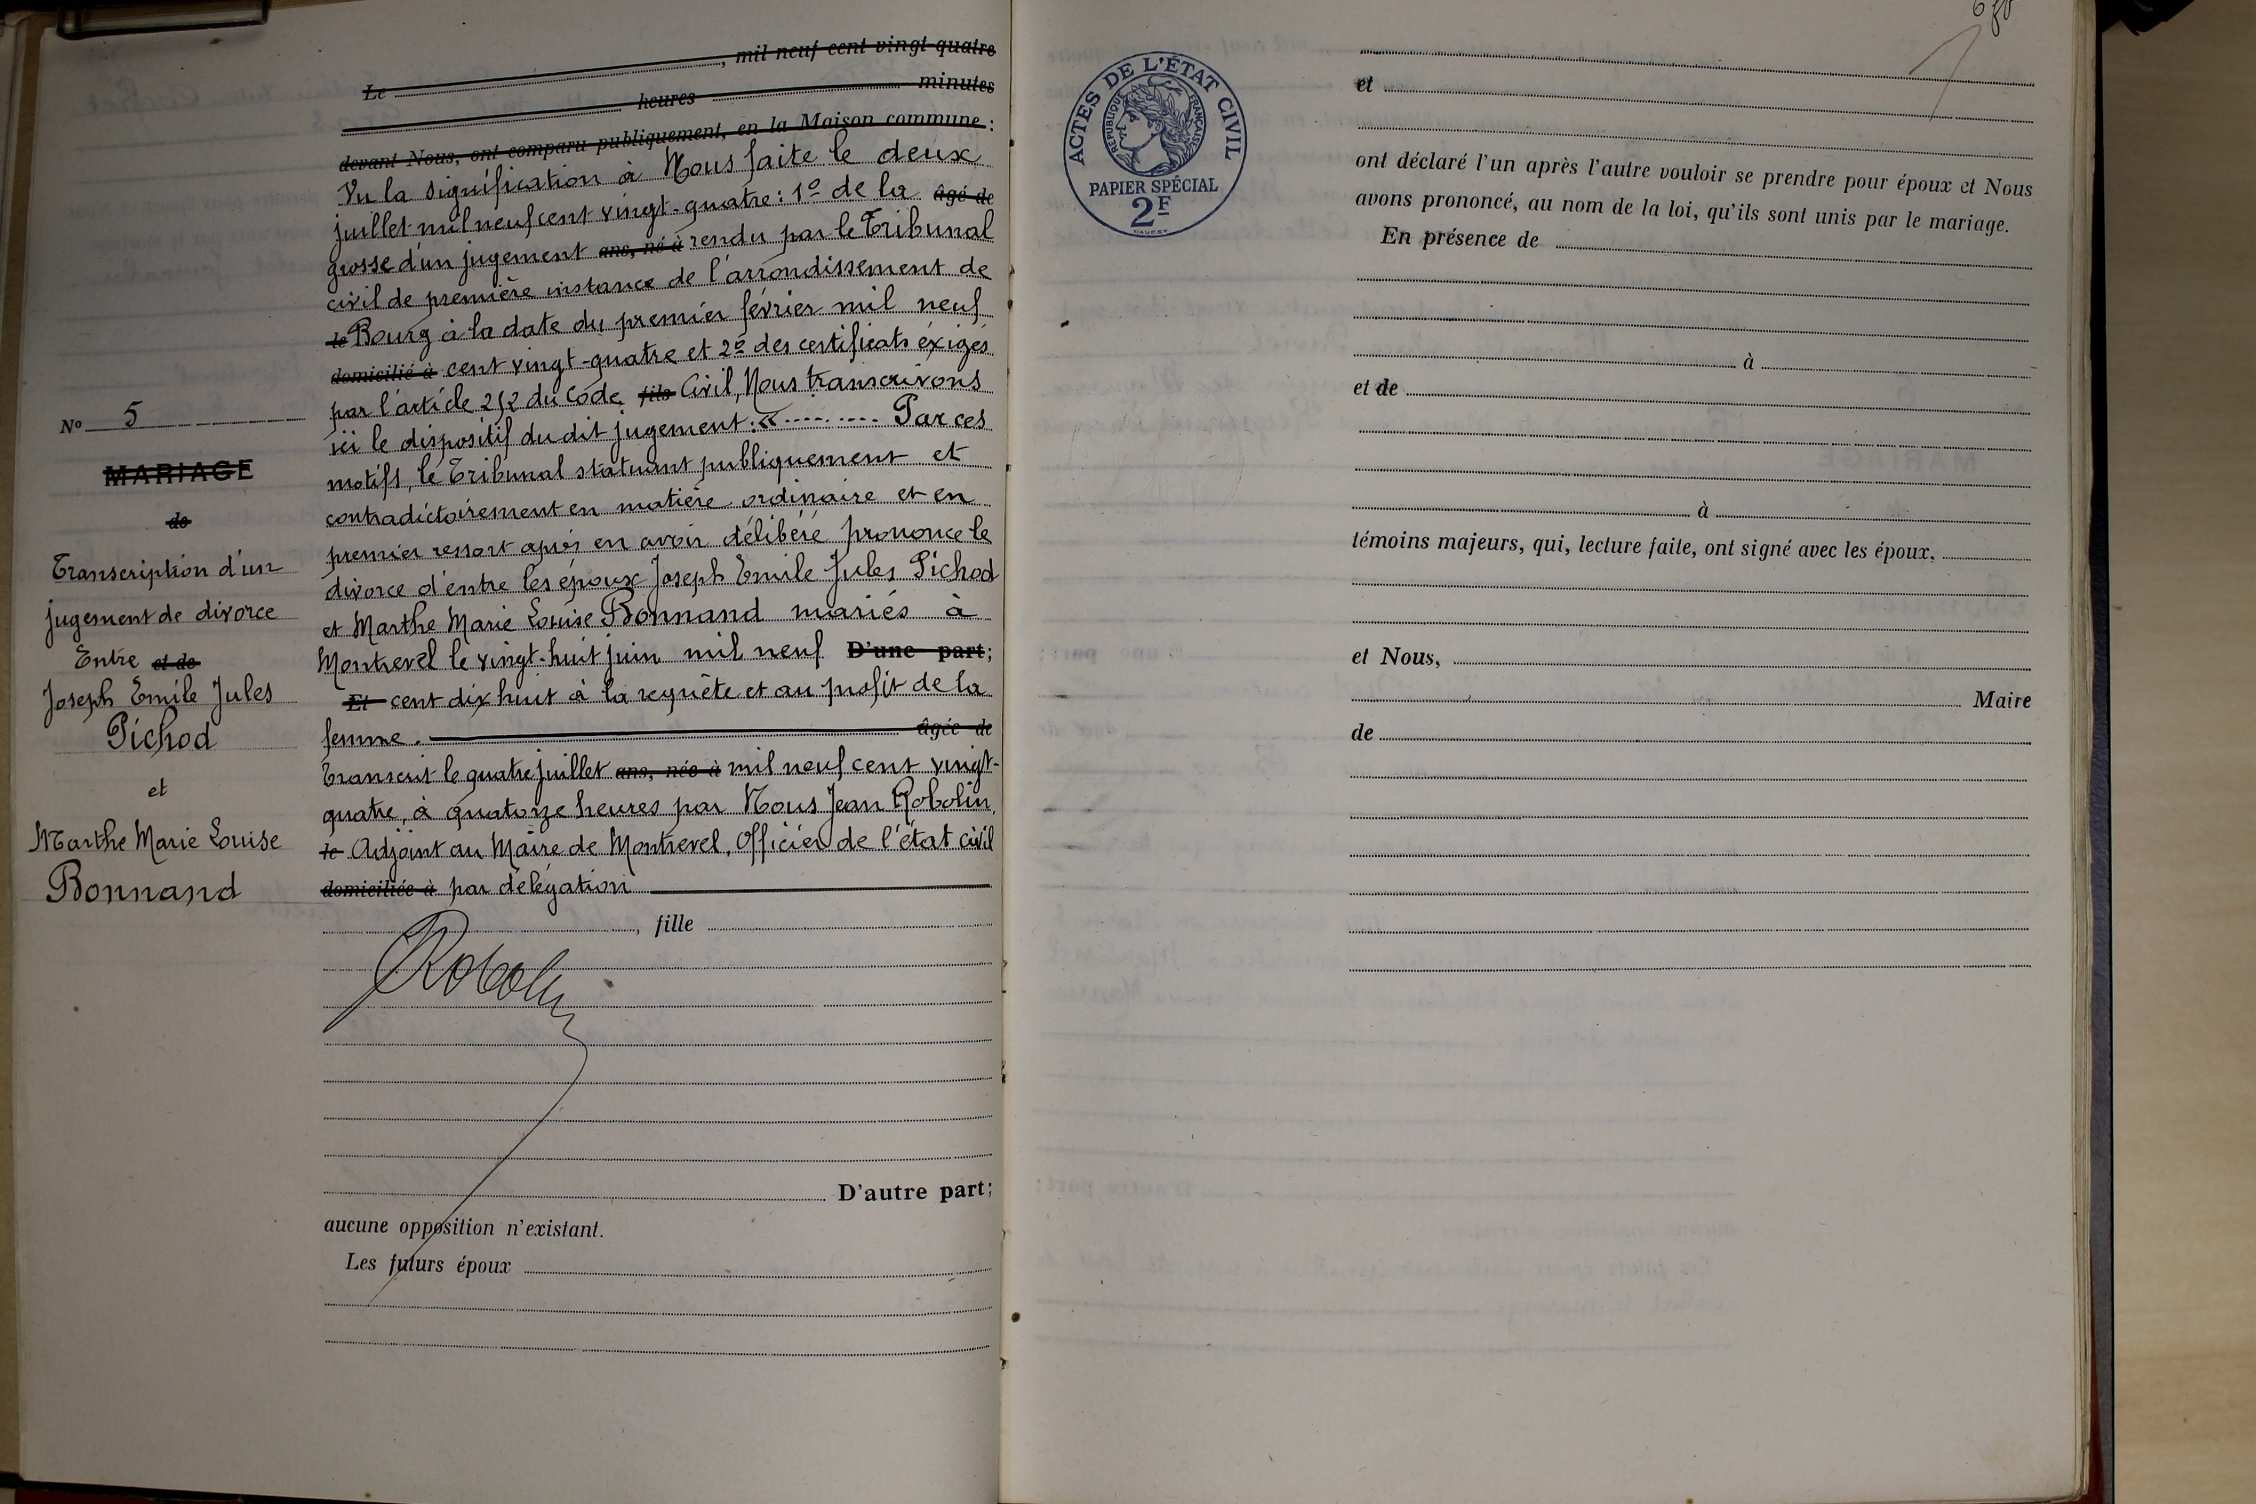 Le , mil neuf cent vingt quatre
heures minutes
devant Nous, ont comparu publiquement, en la Maison commune :
Vu la signification à Nous faite le deux
juillet mil neuf cent vingt-quatre : 1º de la âgé de
grosse d'un jugement ans, né à rendu par le Tribunal
civil de première instance de l'arrondissement de
le Bourg à la date du premier février mil neuf
domicilié à cent vingt-quatre et 2º des certificats éxigés
par l'article 252 du Code fils Civil, Nous transcrivons
ici le dispositif du dit jugement : « ........ Par ces
motifs, le Tribunal statuant publiquement et
contradictoirement en matière ordinaire et en
premier ressort après en avoir délibéré prononce le
divorce d'entre les époux Joseph Emile Jules Pichod
et Marthe Marie Louise Bonnand mariés à
Montrevel le vingt-huit juin mil neuf D'une part;
Et cent dix huit à la requête et au profit de la
femme. âgée de
Transcrit le quatre juillet ans, née à mil neuf cent vingt-
quatre, à quatorze heures par Nous Jean Robolin,
le Adjoint au Maire de Montrevel, Officier de l'état civil
domiciliée à par délégation
, fille
Robolin
D'autre part;
aucune opposition n'existant.
Les futurs époux
No 5
MARIAGE
de
Transcription d'un
jugement de divorce
Entre et de
Joseph Emile Jules
Pichod
et
Marthe Marie Louise
Bonnand
ACTES DE L'ÉTAT CIVIL
RÉPUBLIQUE FRANÇAISE
PAPIER SPÉCIAL
2F
et
ont déclaré l'un après l'autre vouloir se prendre pour époux et Nous
avons prononcé, au nom de la loi, qu'ils sont unis par le mariage.
En présence de
à
et de
à
témoins majeurs, qui, lecture faite, ont signé avec les époux,
et Nous,
Maire
de